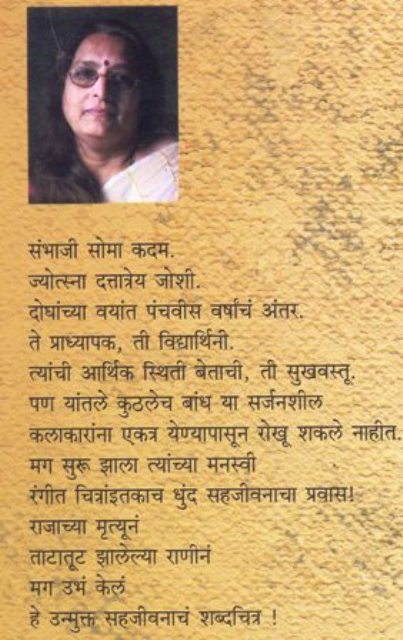 संभाजी सोमा कदम.
ज्योत्स्ना दत्तात्रेय जोशी.
दोघांच्या वयांत पंचवीस वर्षांचं अंतर.
ते प्राध्यापक, ती विद्यार्थिनी.
त्यांची आर्थिक स्थिती बेताची, ती सुखवस्तू.
पण यांतले कुठलेच बांध या सर्जनशील
कलाकारांना एकत्र येण्यापासून रोखू शकले नाहीत.
मग सुरू झाला त्यांच्या मनस्वी
रंगीत चित्रांइतकाच धुंद सहजीवनाचा प्रवास!
राजाच्या मृत्यूनं
ताटातूट झालेल्या राणीनं
मग उभं केलं
हे उन्मुक्त सहजीवनाचं शब्दचित्र !